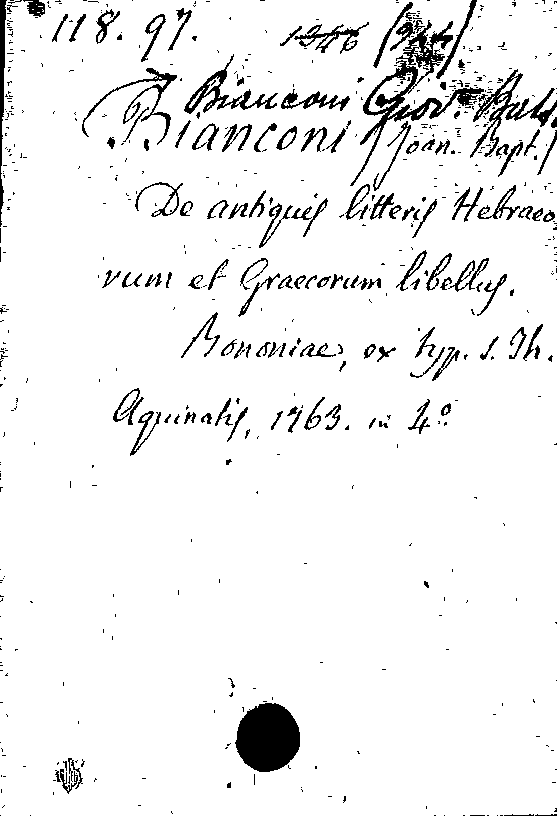 118. 97.
Bianconi Giov. Batt.
Bianconi (Joan. Bapt.)
De antiquis litteris Hebraeo
rum et Graecorum libellus.
Bononiae, ex typ. S. Th.
Aquinatis, 1763. in 4.º